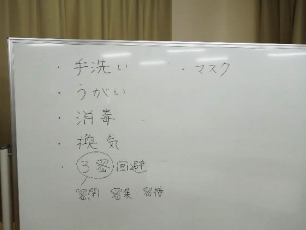 ・手洗い ・マスク
・うがい
・消毒
・換気
・3密回避
密閉 密集 密接